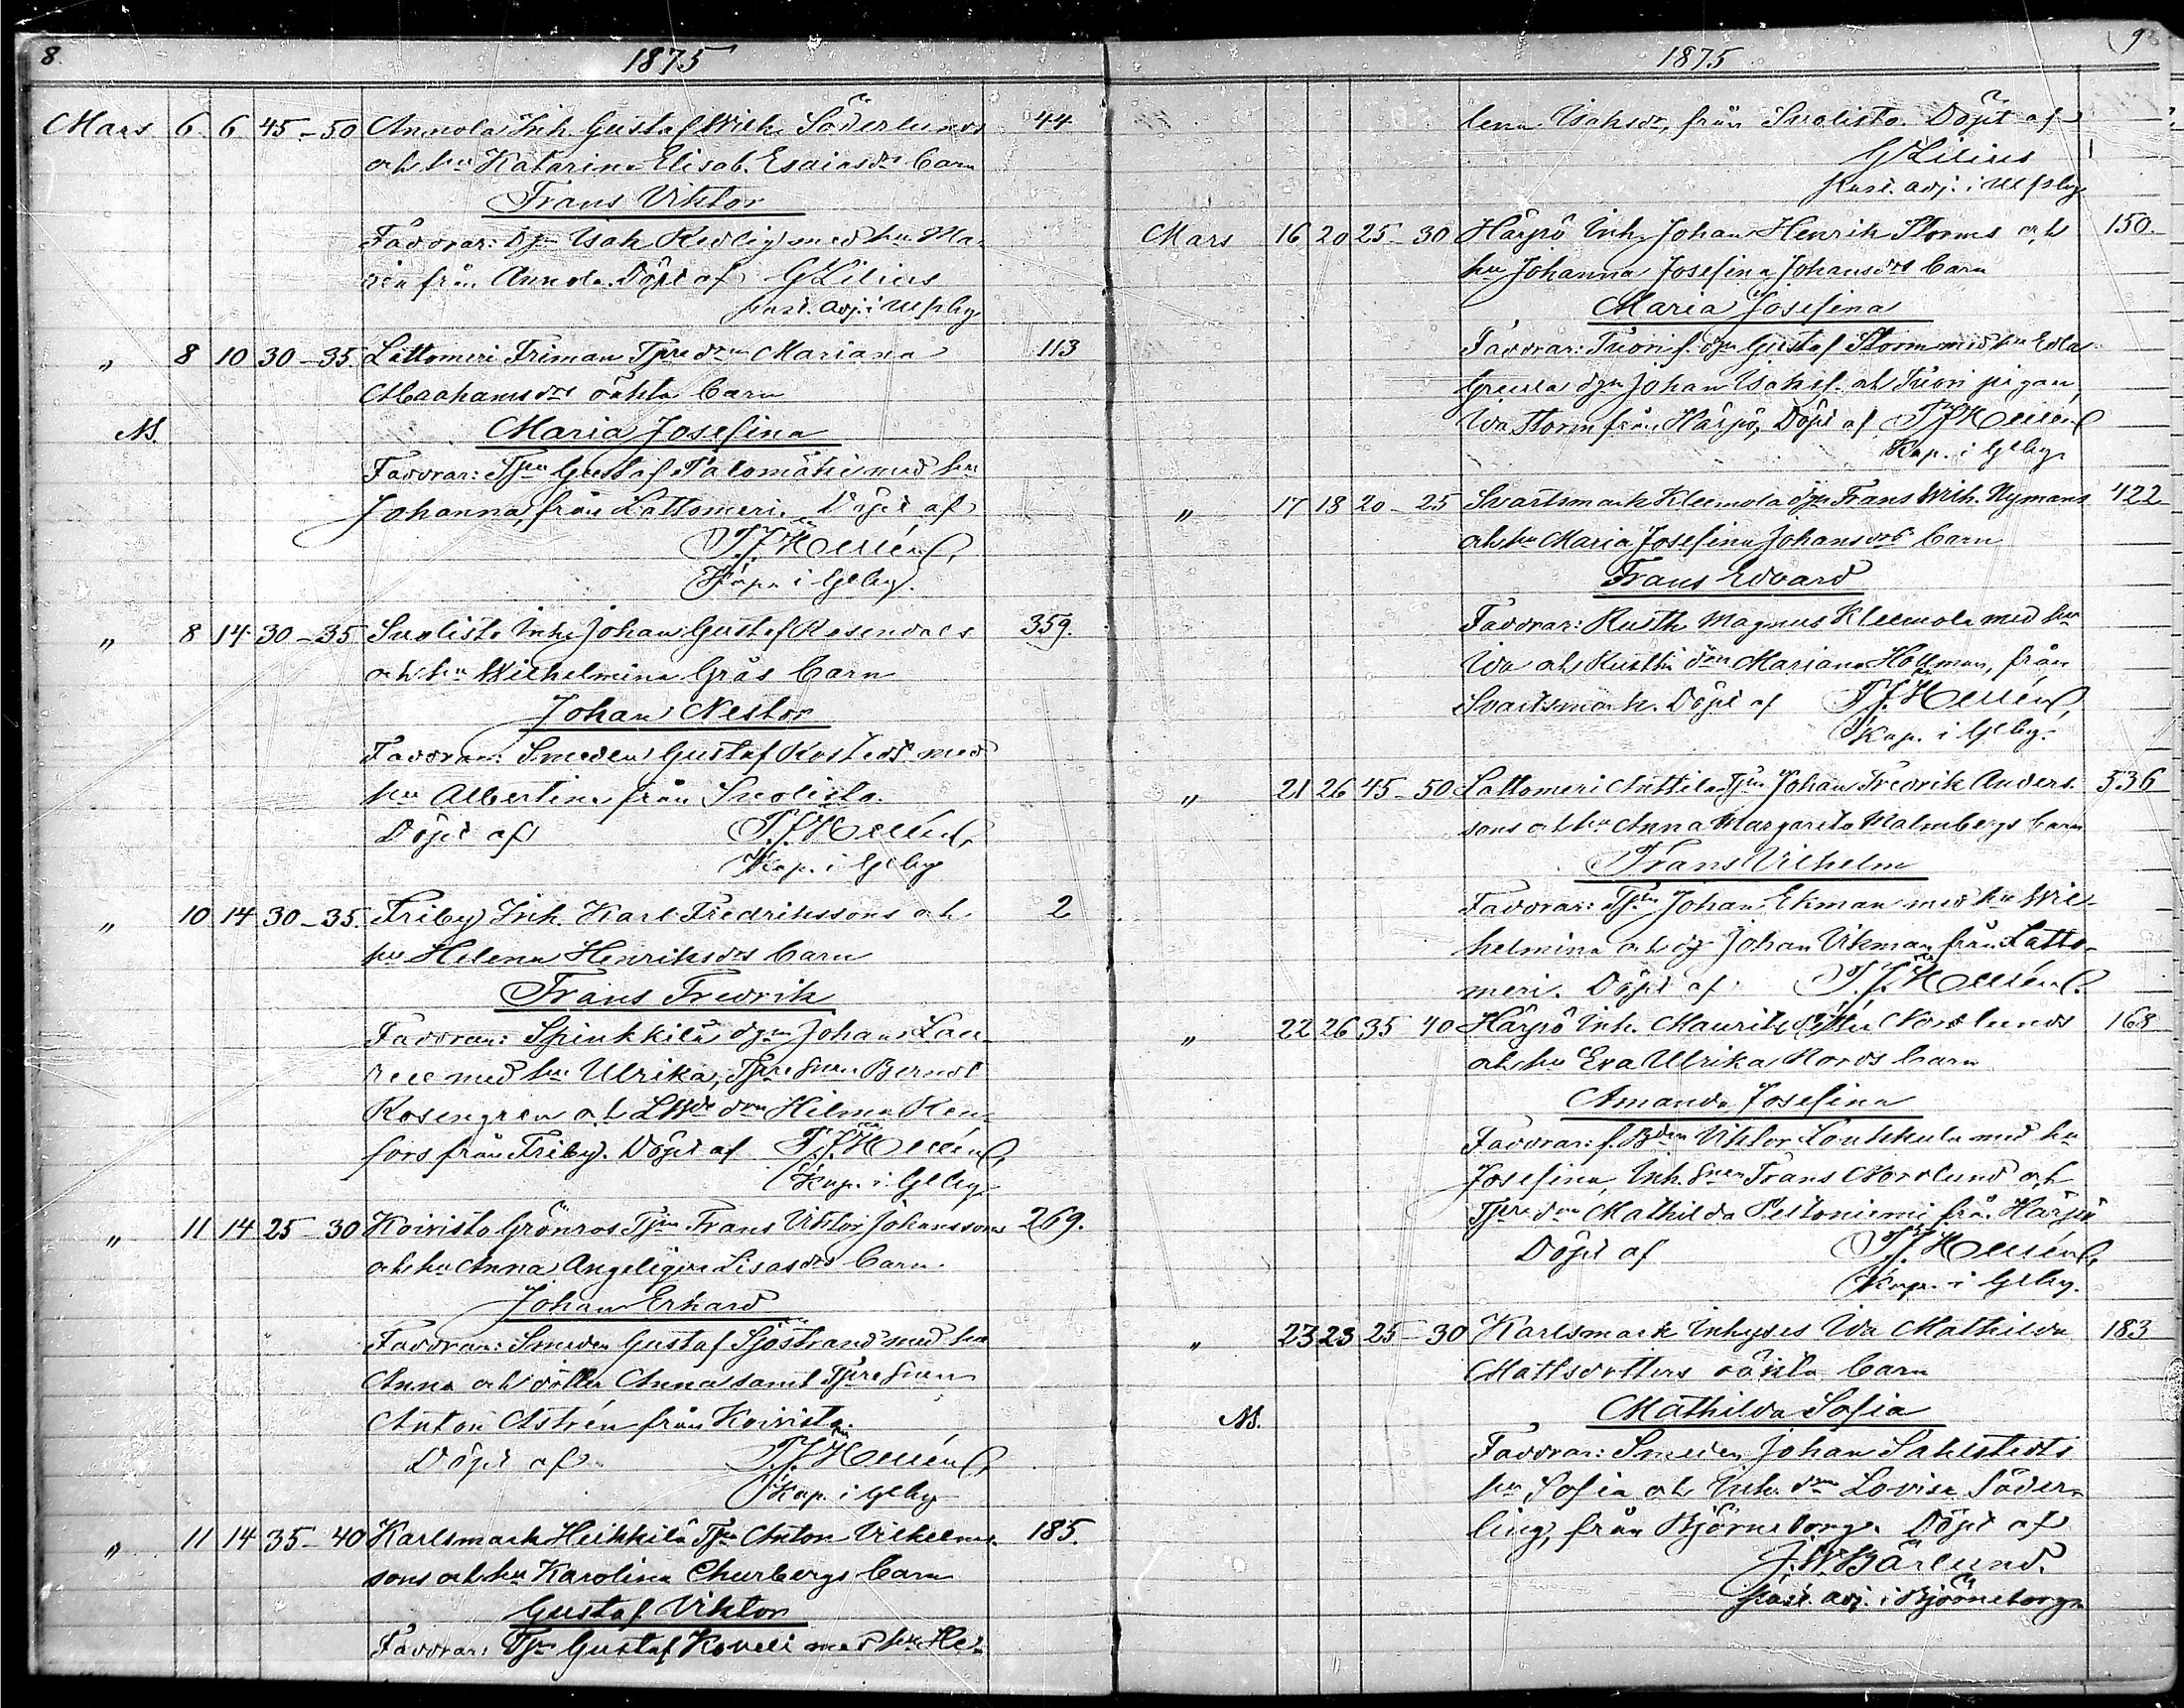 8.
1875
Mars 6 6 45–50 Annola Inh. Gustaf Wilh. Söderlunds 44
och hu Katarina Elisab. Esaiasdrs barn
Frans Viktor
Faddrar: Isak Kedlig med hu Ma-
ria från Annola. Döpt af G Lilius
past. adj. i Ulfsby
" 8 10 30–35. Lattomeri Friman Mariana 113
Abrahamsdrs oäkta barn
N.
Maria Josefina
Faddrar: Gustaf Palomäki med hu
Johanna, från Lattomeri. Döpt af
T. J. Hellén,
Kap. i Glby.
" 8 14 30–35 Suolisto Inh. Johan Gustaf Rosendals 359.
och hu Wilhelmina Grås barn
Johan Nestor
Faddrar: Smeden Gustaf Rostedt med
hu Albertina från Suolisto.
Döpt af T. J. Hellén,
Kap. i Glby
" 10 14 30–35. Friby Inh. Karl Fredrikssons och 2
hu Helena Henriksdrs barn
Frans Fredrik
Faddrar: Spinkkilä Johan Lau-
rell med hu Ulrika, Berndt
Rosengren och Hilma Ren-
fors från Friby. Döpt af T. J. Hellén,
Kap. i Glby.
" 11 14 25–30 Koivisto Grönroos Frans Viktor Johanssons 269.
och hu Anna Angeliqva Lisasdrs barn.
Johan Erhard
Faddrar: Smeden Gustaf Sjöstrand med hu
Anna och dotter Anna samt
Anton Astrén från Koivisto.
Döpt af T. J. Hellén,
Kap. i Glby
" 11 14 35–40 Karlsmark Heikkilä Anton Vilhelms- 185.
sons och hu Karolina Churbergs barn
Gustaf Viktor
Faddrar: Gustaf Koveli med hu He-
1875
9
lena Isaksdr, från Suolisto. Döpt af
G Lilius
past. adj. i Ulfsby
Mars 16 20 25–30 Härpö Inh. Johan Henrik Storms och 150.
hu Johanna Josefina Johansdrs barn
Maria Josefina
Faddrar: Gustaf Storm med hu Edla
Johan Isaksf. och pigan
Ida Storm från Härpö, Döpt af T. J. Hellén
Kap. i Glby
" 17 18 20–25 Svartsmark Kleemola Frans Wilh. Nymans 422
och hu Maria Josefina Johansdrs barn
Frans Edvard
Faddrar: Rusth. Magnus Kleemola med hu
Ida och Mariana Hollman, från
Svartsmark. Döpt af T. J. Hellén,
Kap. i Glby.
" 21 26 45–50 Lattomeri Anttila Johan Fredrik Anders- 536
sons och hu Anna Margareta Malmbergs barn
Frans Vilhelm
Faddrar: Johan Ekman med hu Wil-
helmina och Johan Vikman från Latto-
meri. Döpt af T. J. Hellén.
" 22 26 35–40 Härpö Inh. Maurits Nordlunds 168
och hu Eva Ulrika Nords barn
Amanda Josefina
Faddrar: Viktor Loukkula med hu
Josefina, Inh. Frans Nordlund och
Mathilda Peltoniemi från Härpö
Döpt af T. J. Hellén,
Kap. i Glby.
" 23 23 25–30 Karlsmark Inhyses Ida Mathilda 183
Mattsdotters oäkta barn
N.
Mathilda Sofia
Faddrar: Smeden Johan Sahlstedts
hu Sofia och Inh. Lovisa Söder-
ling, från Björneborg. Döpt af
J. W. Bärlund.
past. adj. i Björneborg